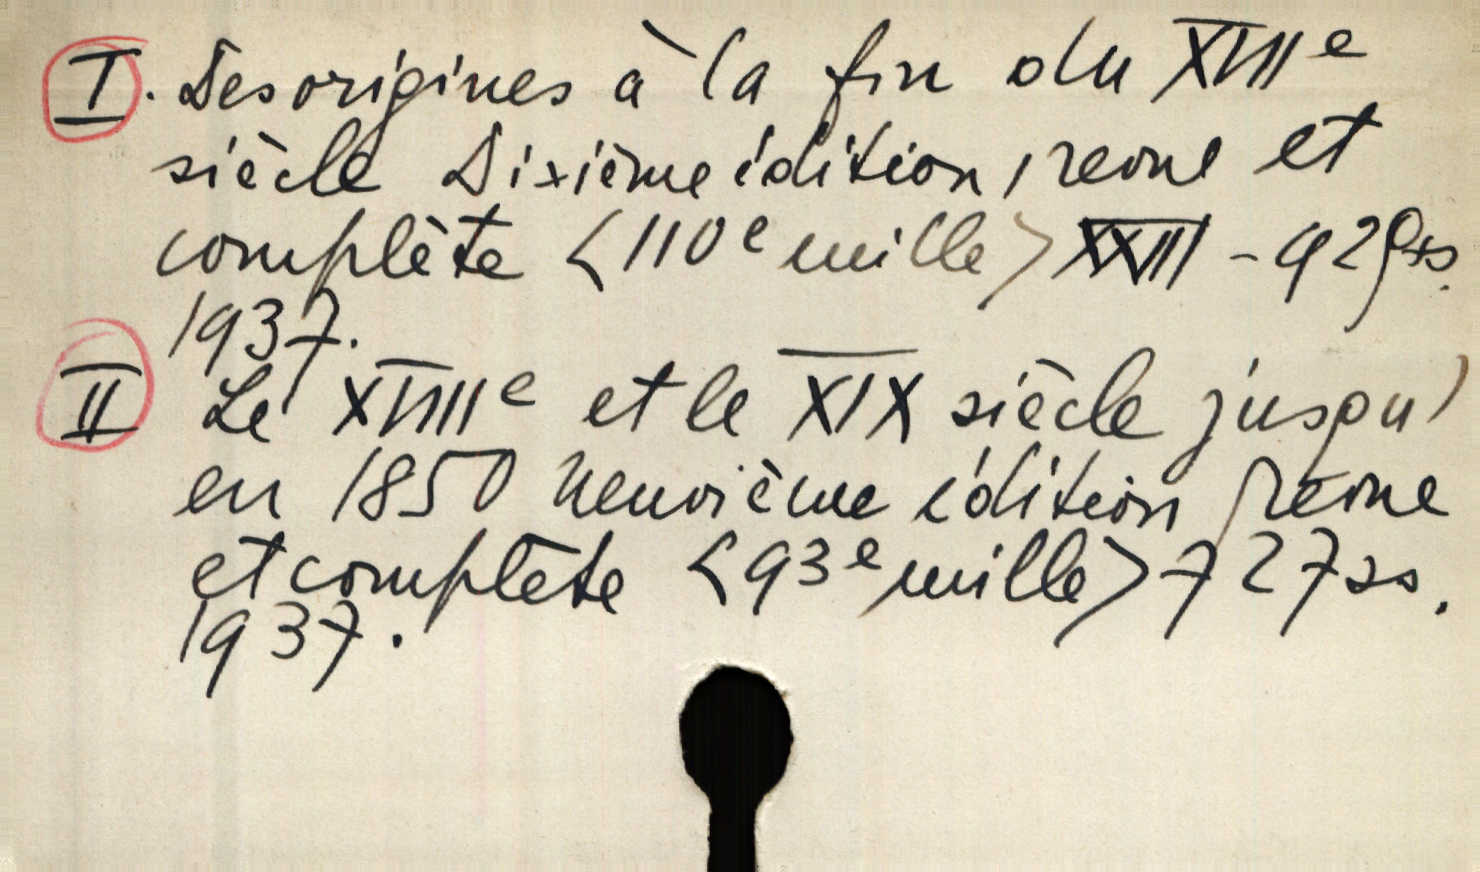 I. Des origines à la fin du XVIIe
siècle Dixième édition, revue et
complète <110e mille> XXVII - 929 ss.
1937.
II Le XVIIIe et le XIX siècle jusqu'
en 1850 neuvième édition revue
et complète <93e mille> 727 ss.
1937.